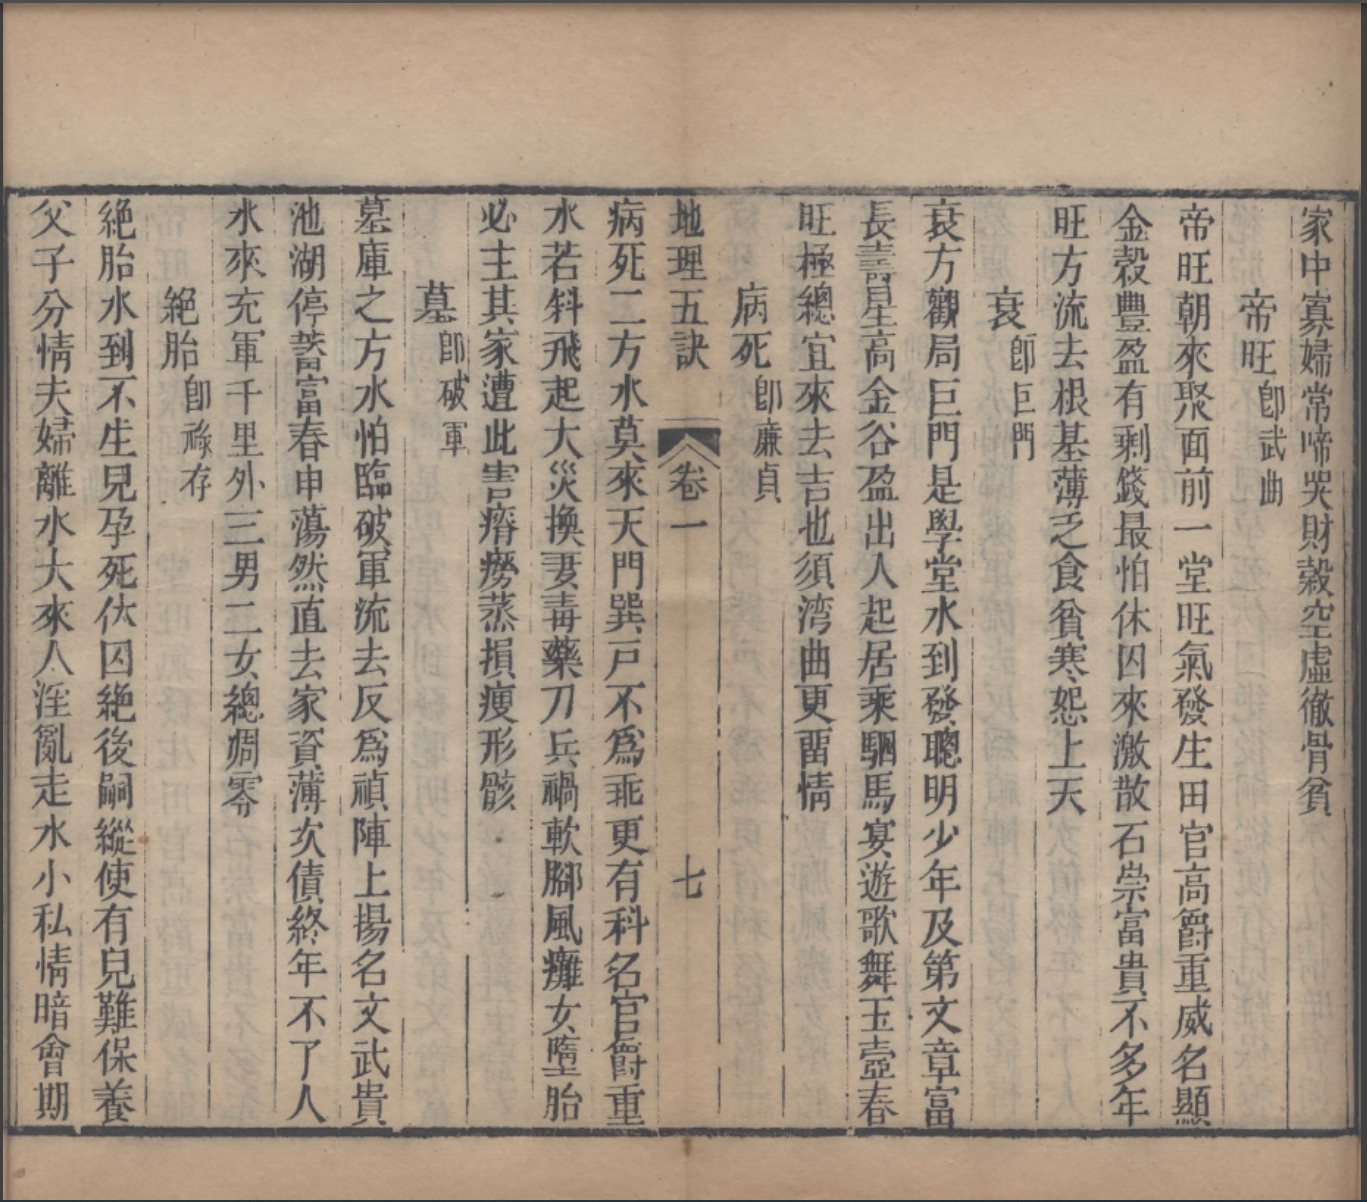 家中寡婦常啼哭財榖空虛徹骨貧
帝旺卽武曲
帝旺朝來聚面前一堂旺氣發生田官高爵重威名顯
金榖豐盈有剩錢最怕休囚來激散石崇富貴不多年
旺方流去根基薄乏食貧寒恕上天
衰卽巨門
衰方觀局巨門是學堂水到發聰明少年及第文章富
長壽星高金谷盈出人起居乘駟馬宴遊歌舞玉壺春
旺極總宜來去吉也須湾曲更畱情
病死卽廉貞
地理五訣 卷一 七
病死二方水莫來天門巽戸不爲乖更有科名官爵重
水若斜飛起大災換妻毒藥刀兵禍軟腳風癱女墮胎
必主其家遭此害瘠癆蒸損瘦形骸
墓卽破軍
墓庫之方水怕臨破軍流去反爲禎陣上揚名文武貴
池湖停蓄富春申蕩然直去家資薄欠債終年不了人
水來充軍千里外三男二女總凋零
絕胎卽祿存
絕胎水到不生兒孕死休囚絕後嗣縱使有兒難保養
父子分情夫婦離水大來人淫亂走水小私情暗會期